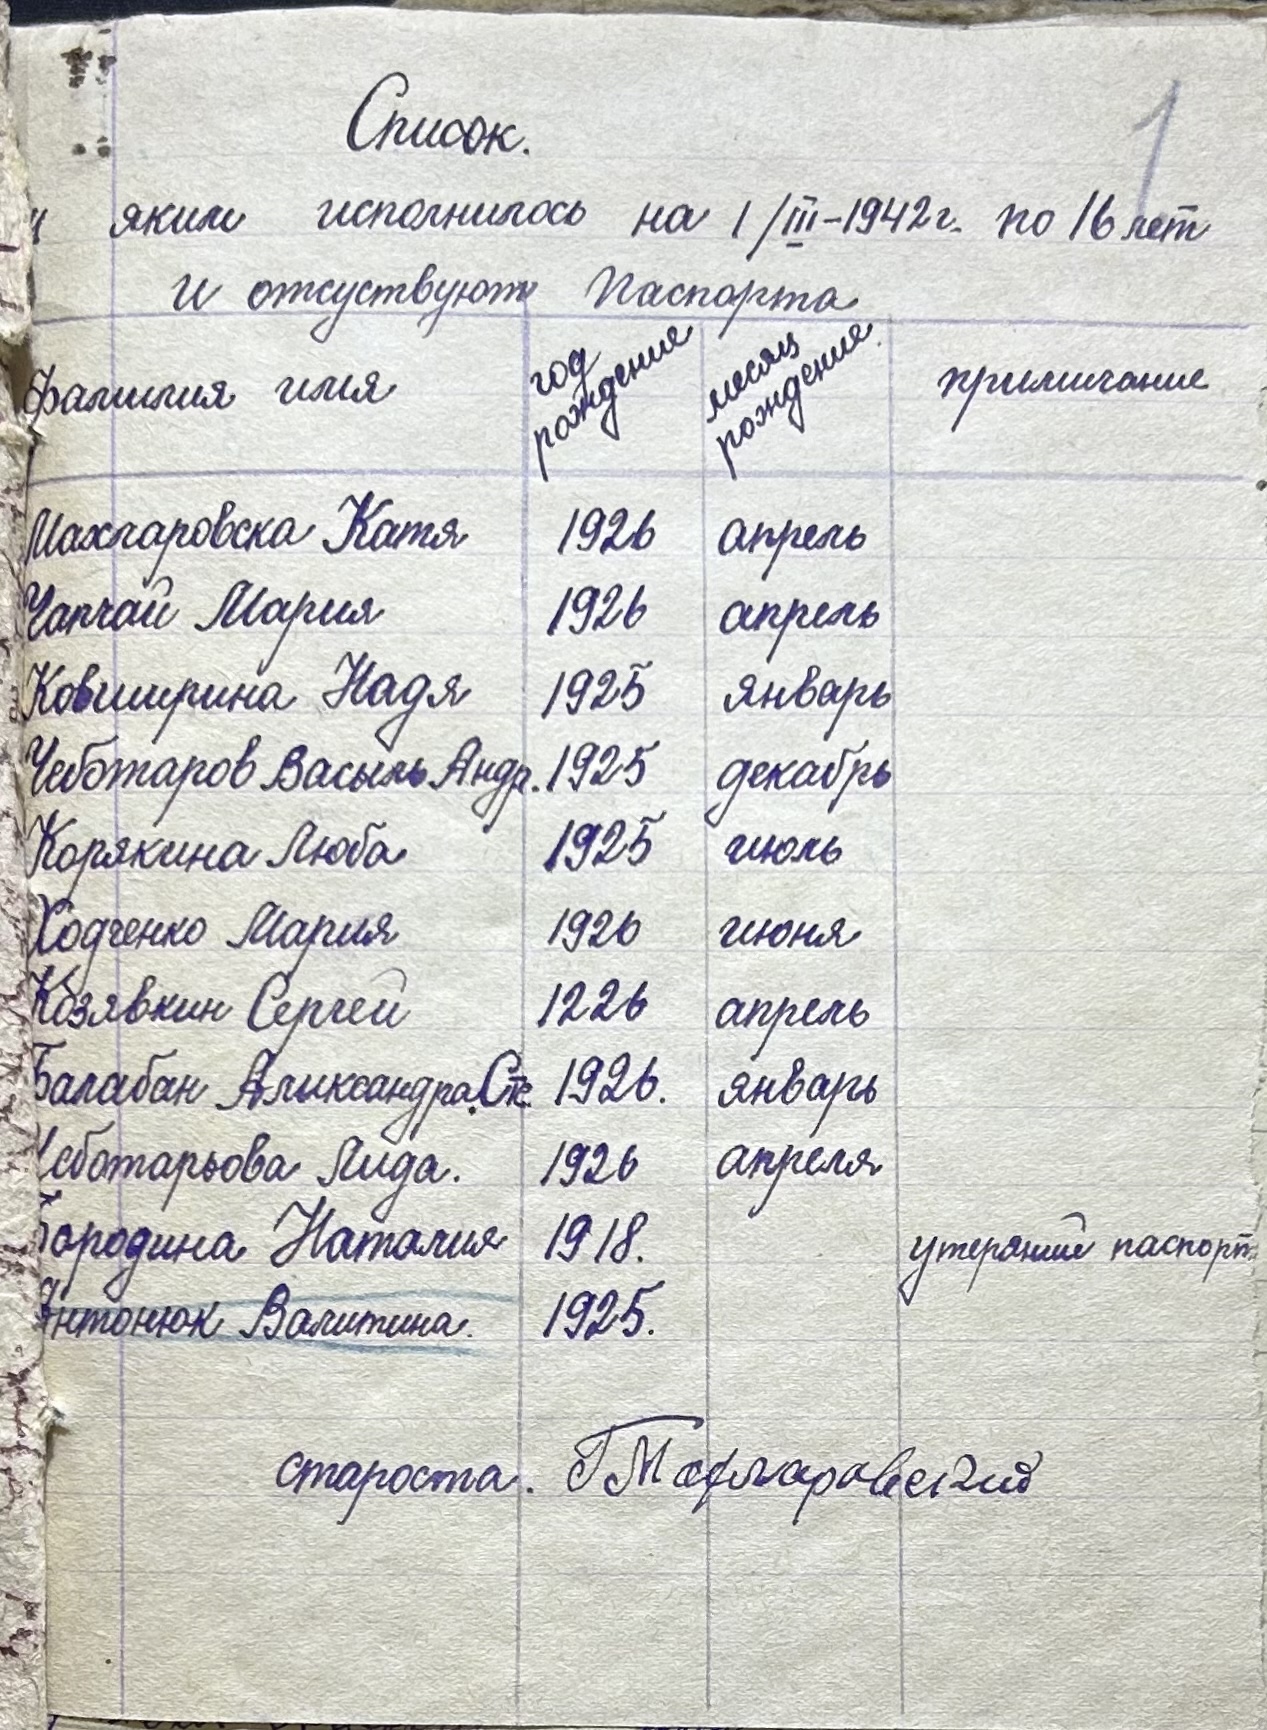 1
Список.
яким исполнилось на 1/III-1942г. по 16 лет
и отсуствуют Паспорта
Фамилия имя год рождения месяц рождения примичание
Махларовска Катя 1926 апрель
Чапчай Мария 1926 апрель
Ковширина Надя 1925 январь
Чеботаров Васыль Андр. 1925 декабрь
Корякина Люба 1925 июль
Ходченко Мария 1926 июня
Козявкин Сергей 1226 апрель
Балабан Александра Ст. 1926. январь
Чеботарьова Лида. 1926 апреля
Бородина Наталия 1918. утеряний паспорт
Антонюк Валитина. 1925.
староста.